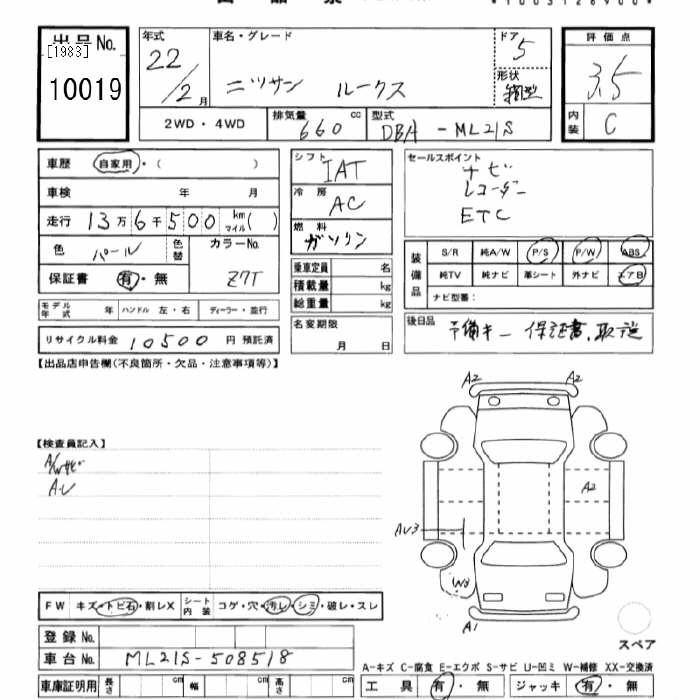 出品No.
[1983]
10019
年式
22/2月
車名・グレード
ニッサン ルークス
ドア
5
形状
箱型
評価点
3.5
内装
C
2WD・4WD
排気量
660 cc
型式
DBA-ML21S
車歴 自家用・( )
車検 年 月
走行 13万6千500 km マイル( )
色 パール 色替
カラーNo.
Z7T
保証書 有・無
モデル年式 年 ハンドル 左・右 ディーラー・並行
リサイクル料金 10500 円 預託済
シフト
IAT
冷房
AC
燃料
ガソリン
乗車定員 名
積載量 kg
総重量 kg
名変期限
月 日
セールスポイント
ナビ
レコーダー
ETC
装備品
S/R 純A/W P/S P/W ABS
純TV 純ナビ 革シート 外ナビ エアB
ナビ型番:
後日品
予備キー 保証書、取説
【出品店申告欄(不良箇所・欠品・注意事項等)】
【検査員記入】
A/Wサビ
AU
A2
A2
A2
AU3
W3
A1
スペア
FW キズ・トビ石・割レX シート内装 コゲ・穴・汚レ・シミ・破レ・スレ
登録No.
車台No. ML21S-508518
A-キズ C-腐食 E-エクボ S-サビ U-凹ミ W-補修 XX-交換済
車庫証明用 長さ cm 幅 cm 高さ cm
工具 有・無 ジャッキ 有・無